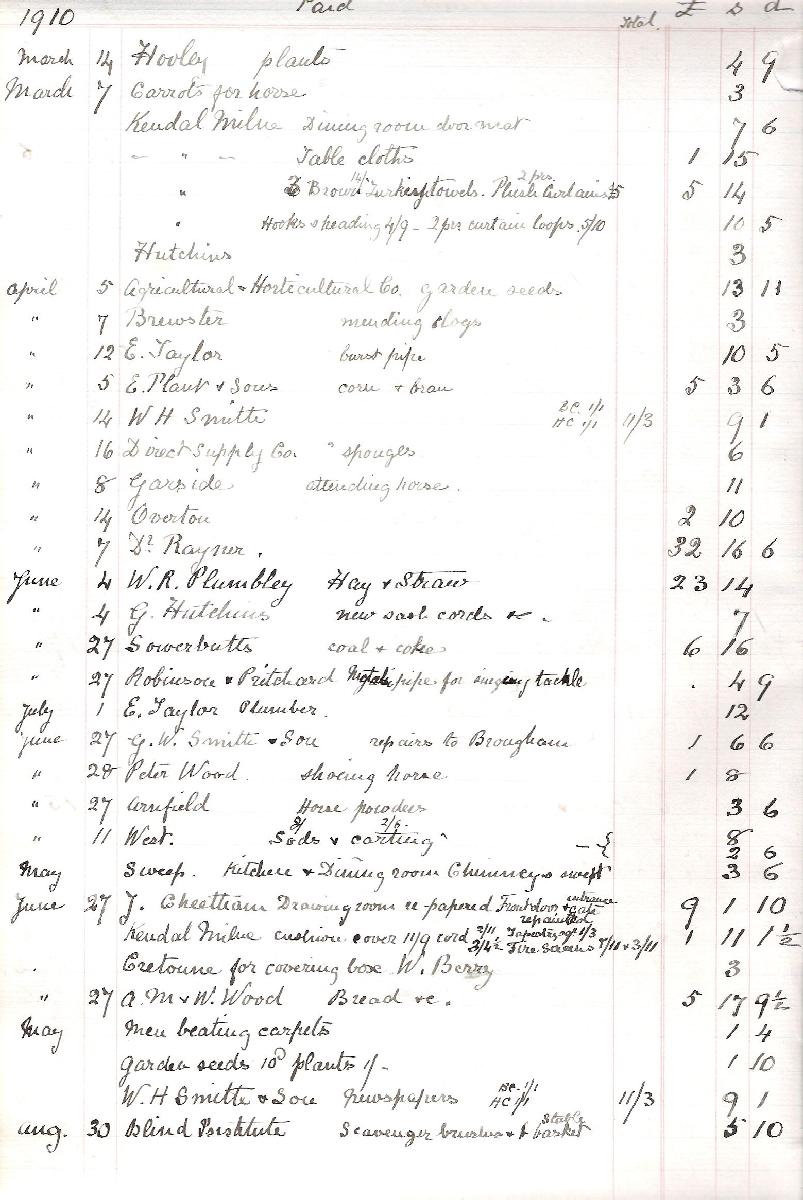 1910 Paid Total. £ s d
March 14 Hooley plants 4 9
March 7 Carrots for horse 3
Kendal Milne Dining room door mat 7 6
– " – Table cloths 1 15
" 3 Brown Turkish towels. 14/- Plush Curtains 2 prs. 5 14
" Hooks & heading 4/9 – 2 prs curtain loops. 5/10 10 5
Hutchins 3
April 5 Agricultural & Horticultural Co. garden seeds 13 11
" 7 Brewster mending clogs 3
" 12 E. Taylor burst pipe 10 5
" 5 E. Plant & Sons corn & bran 5 3 6
" 14 W H Smith BC. 1/1 HC 1/1 11/3 9 1
" 16 Direct Supply Co. " sponges 6
" 8 Garside attending horse. 11
" 14 Overton 2 10
" 7 Dr. Rayner. 32 16 6
June 4 W. R. Plumbley Hay & Straw 23 14
" 4 G. Hutchins new sash cords &c. 7
" 27 Sowerbutts coal & coke 6 16
" 27 Robinson & Pritchard pipe for singeing tackle . 4 9
July 1 E. Taylor Plumber. 12
June 27 G. W. Smith & Son repairs to Brougham 1 6 6
" 28 Peter Wood. shoeing horse 1 8
" 27 Arnfield Horse powders 3 6
" 11 West. Sods 8/ & carting 2/6. – { 8
2 6
May Sweep. Kitchen & Dining room Chimneys swept 3 6
June 27 J. Cheetham Drawing room re papered Front door & entrance gate repainted 9 1 10
Kendal Milne cushion cover 11/9 cord 2/11 3/4½ Tapestry 1/3 Fire Screens 7/11 & 3/11 1 11 1½
. Cretonne for covering box W. Berry 3
" 27 A. M & W. Wood Bread &c. 5 17 9½
May Men beating carpets 1 4
Garden seeds 10d plants 1/- 1 10
W. H Smith & Son Newspapers BC. 1/1 HC 1/1 11/3 9 1
Aug. 30 Blind Institute Scavenger brushes & 1 stable basket 5 10